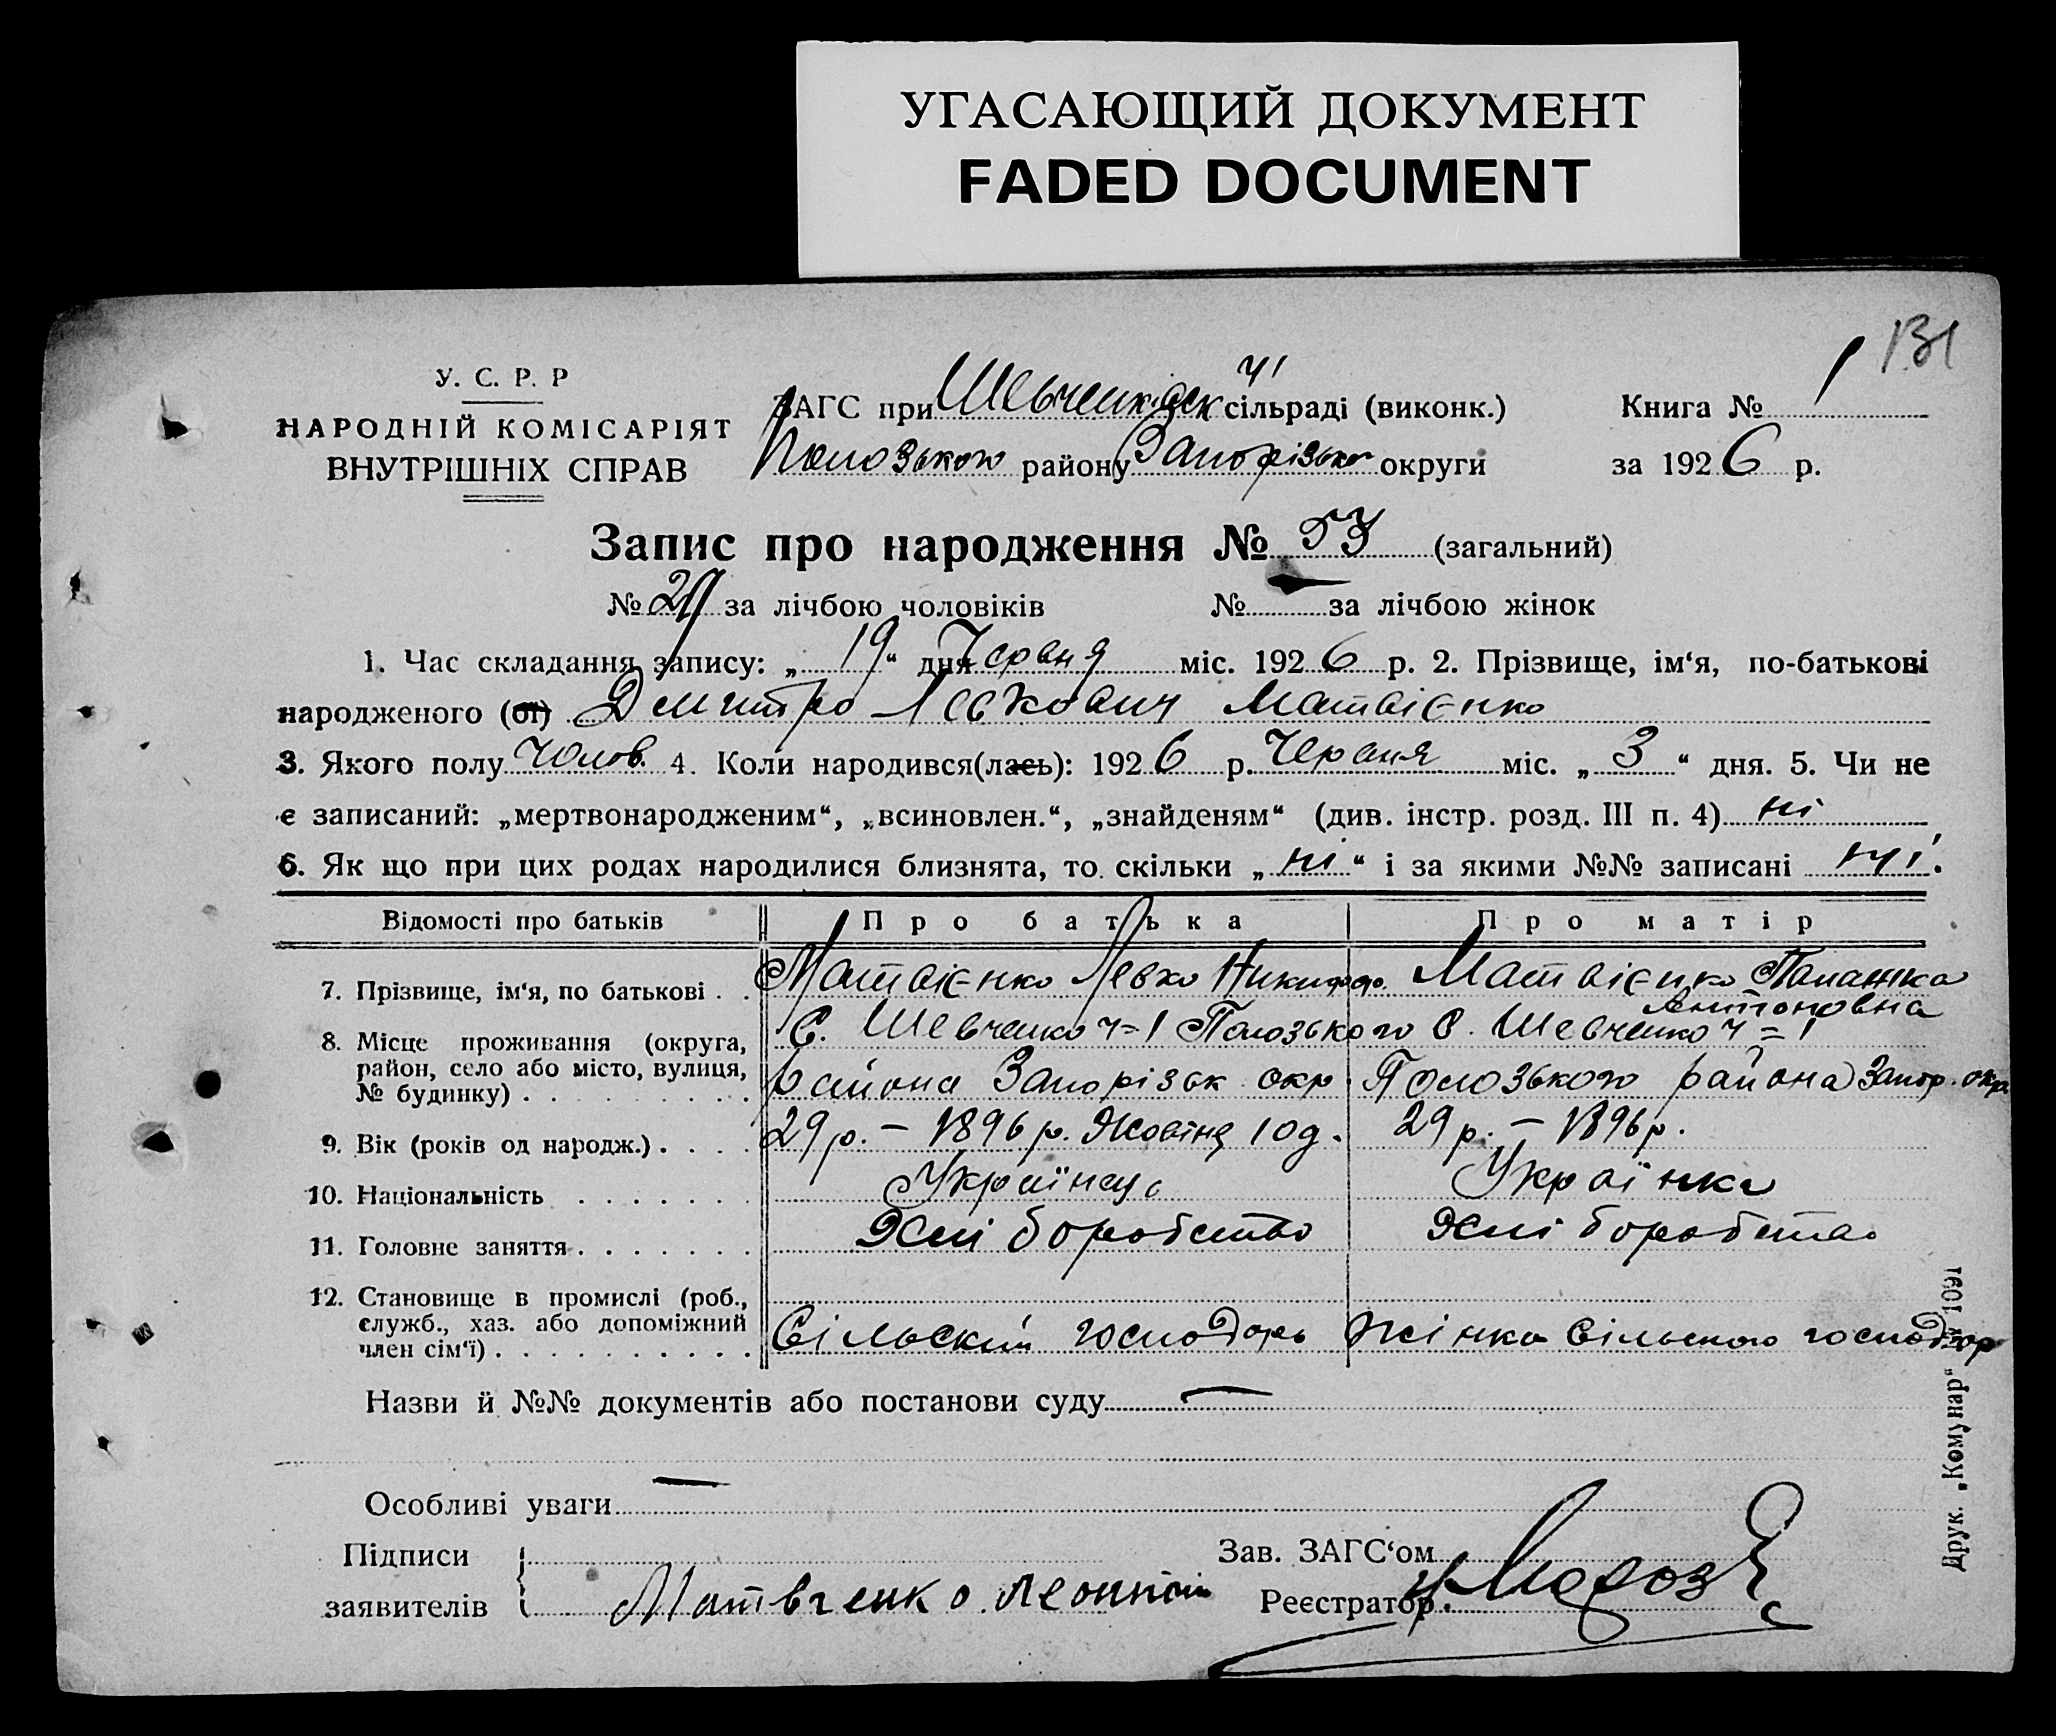 УГАСАЮЩИЙ ДОКУМЕНТ
FADED DOCUMENT
131
У. С. Р. Р
НАРОДНІЙ КОМІСАРІЯТ
ВНУТРІШНІХ СПРАВ
ЗАГС при Шевченківськ ч1 сільраді (виконк.) Книга № 1
Полозького району Запорізької округи за 1926 р.
Запис про народження № 53 (загальний)
№ за лічбою чоловіків № — за лічбою жінок
1. Час складання запису: „ 19 “ дня Червня міс. 1926 р. 2. Прізвище, ім‘я, по-батькові
народженого (ої) Дмитро Левкович Матвієнко
3. Якого полу Чолов. 4. Коли народився(лась): 1926 р. Червня міс. „ 3 “ дня. 5. Чи не
є записаний: „мертвонародженим“, „всиновлен.“, „знайденям“ (див. інстр. розд. III п. 4) ні
6. Як що при цих родах народилися близнята, то скільки „ ні “ і за якими №№ записані ні.
Відомості про батьків Про батька Про матір
7. Прізвище, ім‘я, по батькові . . Матвієнко Левко Никифор. Матвієнко Палажка
Антоновна
8. Місце проживання (округа, район, село або місто, вулиця, № будинку) . . . . . . . . . С. Шевченко ч=1 Полозького С. Шевченко ч=1
района Запорізьк окр. Полозького района Запор. окр.
9. Вік (років од народж.) . . . . 29 р. — 1896 р. Жовтня 10 д. 29 р. — 1896 р.
10. Національність . . . . . . . Українець Українка
11. Головне заняття . . . . . . . Хліборобство Хліборобство
12. Становище в промислі (роб., служб., хаз. або допоміжний член сім‘ї) . . . . . . . . . . Сільський господарь Жінка сільського господар
Назви й №№ документів або постанови суду —
Особливі уваги —
Підписи
заявителів Матвгенко
Зав. ЗАГС‘ом
Реєстратор. Мороз
Друк. „Комунар“ № 1091